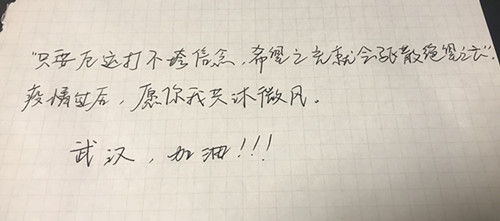 "只要厄运打不垮信念，希望之光就会驱散绝望之云".
疫情过后，愿你我共沐微风。
武汉，加油!!!